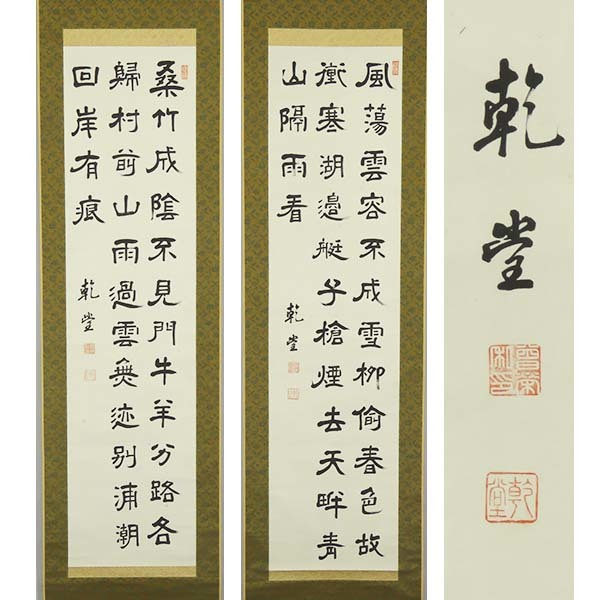 風蕩雲容不成雪柳偷春色故
衝寒湖邊艇子槍煙去天畔青
山隔雨看
乾堂
桑竹成陰不見門牛羊分路各
歸村前山雨過雲無迹別浦潮
回岸有痕
乾堂
乾堂
乾堂